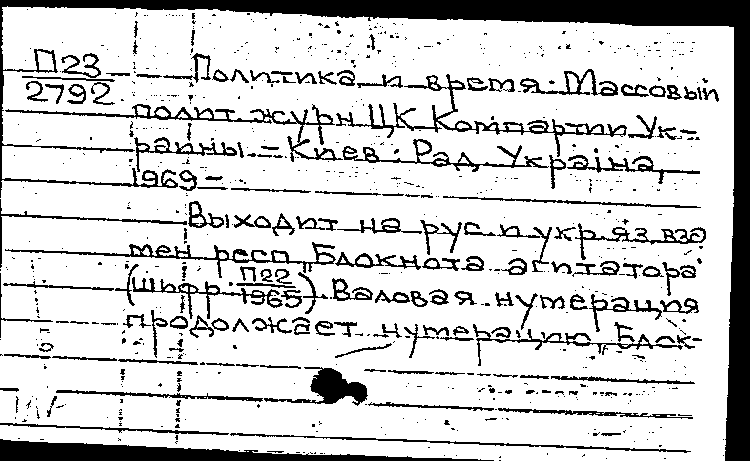 П23
2792
Политика и время: Массовый
полит. журн ЦК Компартии Ук-
раины. – Киев: Рад. Україна,
1969 –
Выходит на рус. и укр. яз. вза
мен респ. „Блокнота агитатора"
(шифр П22
1965). Валовая нумерация
продолжает нумерацию „Блок-